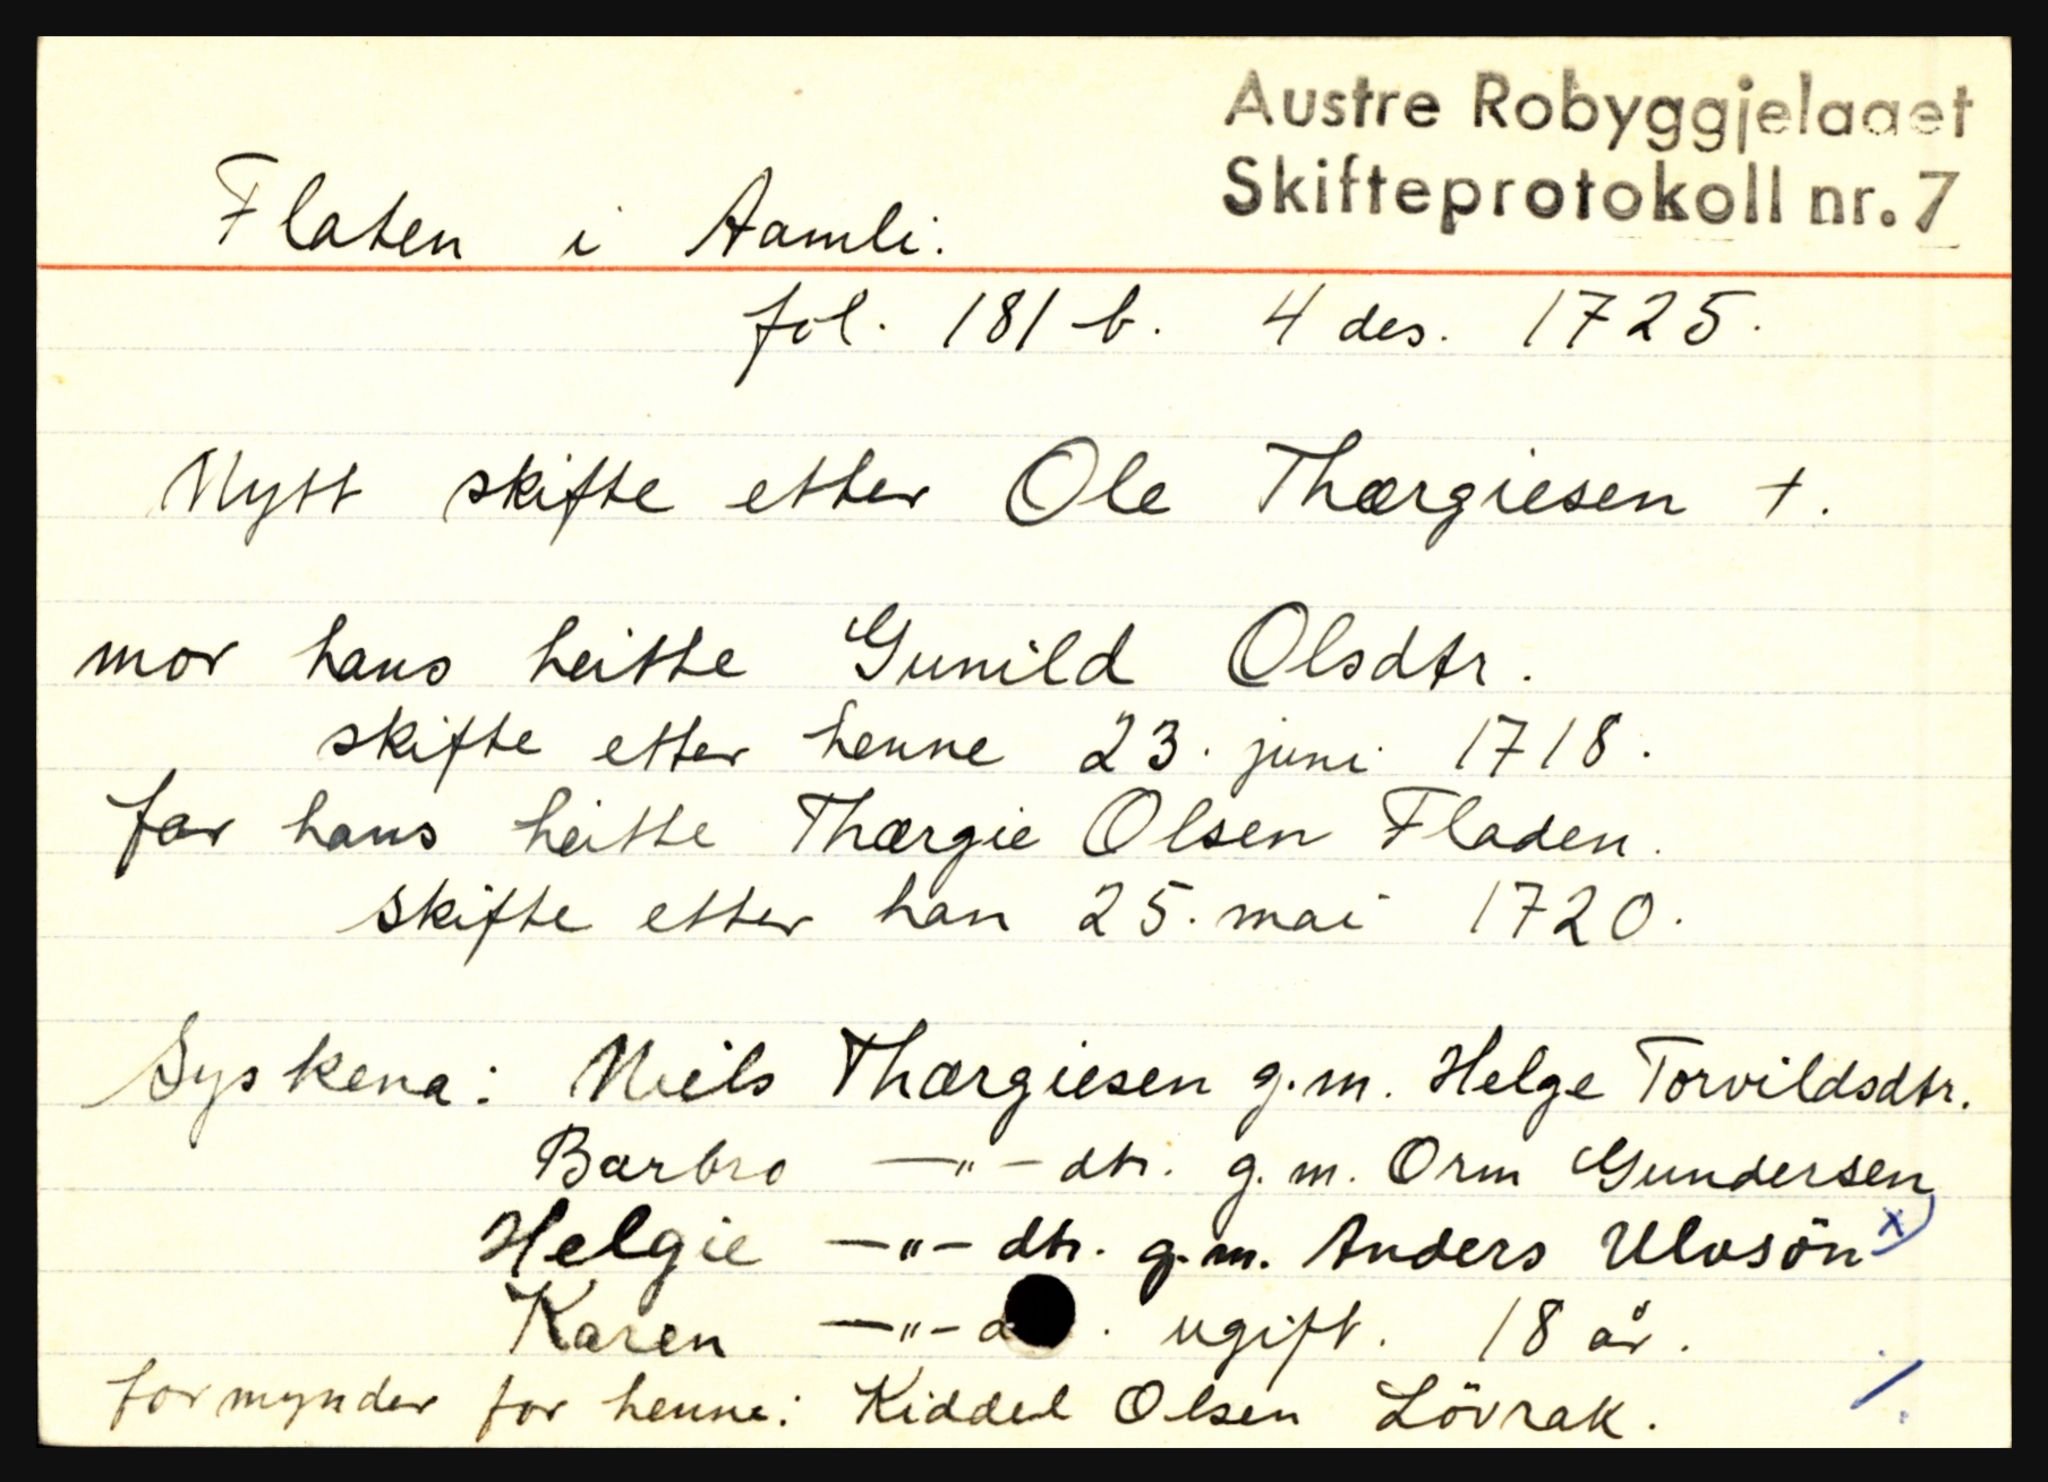 Austre Robyggjelaget
Skifteprotokoll nr. 7
Flaten i Aamli.
fol. 181 b. 4 des. 1725.
Nytt skifte etter Ole Thorgiesen +.
mor hans heitte Gunild Olsdtr.
skifte etter henne 23. juni 1718.
far hans heitte Thorgie Olsen Fladen.
skifte etter han 25. mai 1720.
Syskena: Niels Thorgiesen g.m. Helge Torvildsdtr.
Barbro —"— dtr. g.m. Orm Gundersen
Helgie —"— dtr. g.m. Anders Ulvsön x)
Karen —"— d . ugift. 18 år.
formynder for henne: Kiddel Olsen Lövrak.
/.